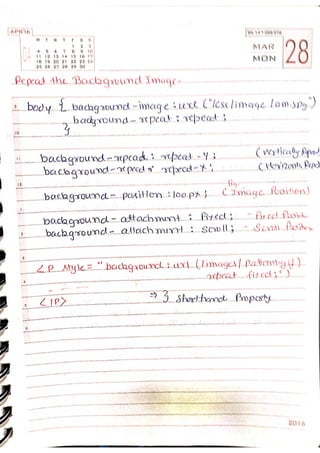 APR'16
M T W T F S S
1 2 3
4 5 6 7 8 9 10
11 12 13 14 15 16 17
18 19 20 21 22 23 24
25 26 27 28 29 30
MAR
MON
28
Repeat the Background Image-
body { background-image : url ("/css/image/
background-repeat : repeat ;
}
background-repeat : repeat-y ; (Vertically Repeat
background-repeat : repeat-x ; (Horizontal Repeat
background-position : 100px ; (Image Position)
background-attachment : fixed ; - Fixed
background-attachment : scroll ; - Scroll
<P style = "background : url (/images/
repeat fixed ;")
</P> ⇒ 3 Shorthand Property
2016